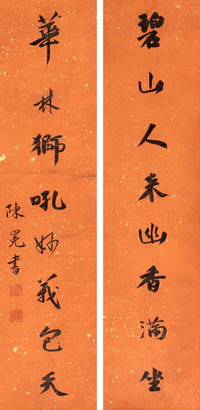 碧山人来幽香满坐
華林獅吼妙義包天
陳冕書